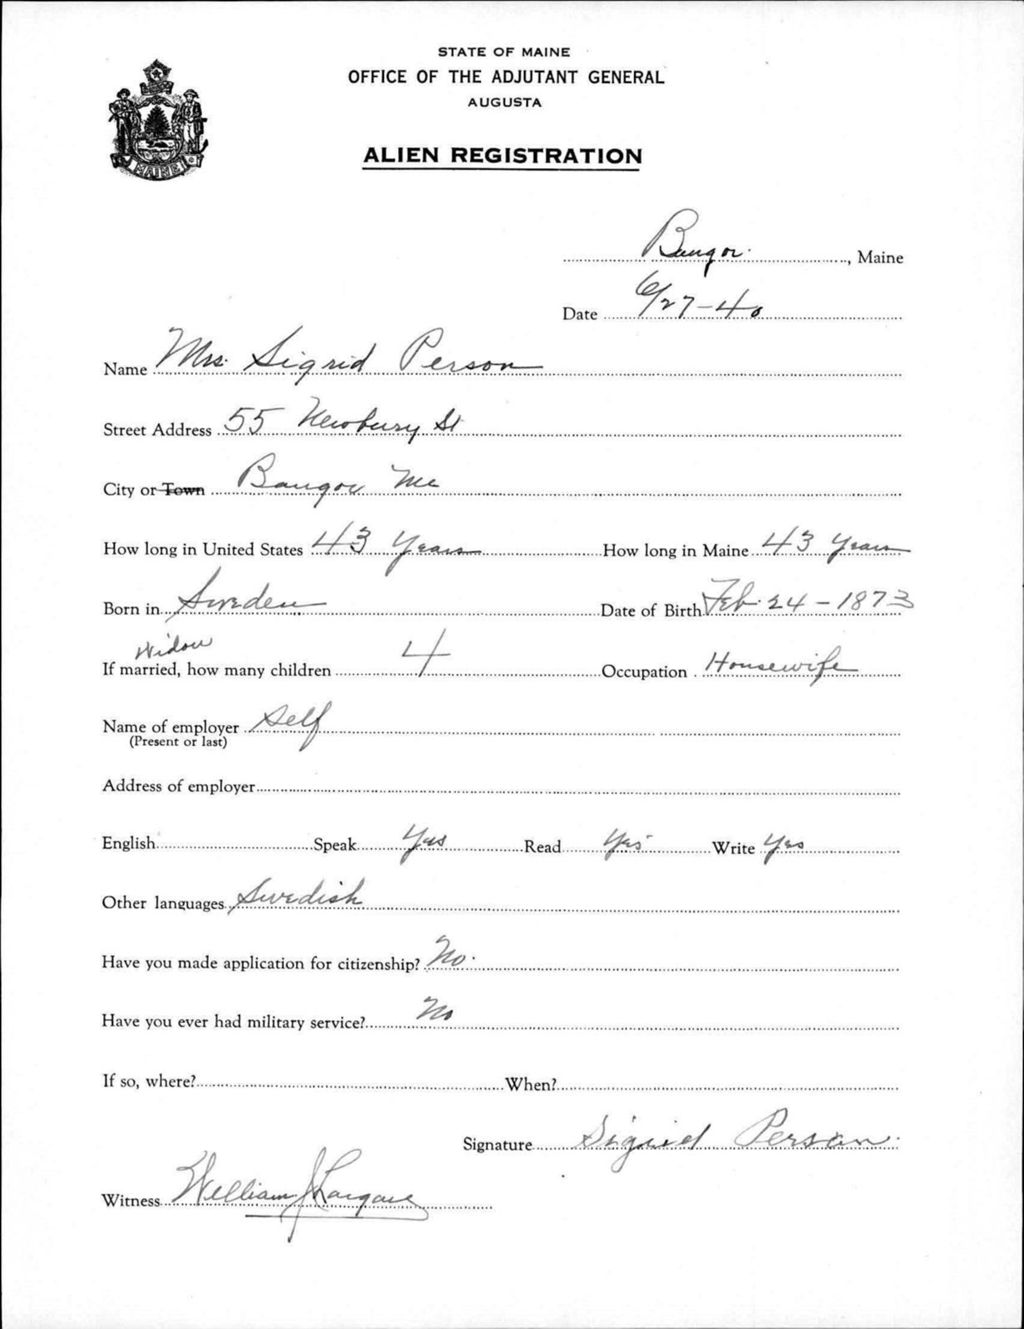 STATE OF MAINE
OFFICE OF THE ADJUTANT GENERAL
AUGUSTA
ALIEN REGISTRATION
MAINE
Bangor, Maine
Date 6/27-40
Name Mrs. Sigrid Person
Street Address 55 Newbury St
City or Town Bangor Me
How long in United States 43 Years How long in Maine 43 Years
Born in Sweden Date of Birth Feb. 24 - 1873
Widow
If married, how many children 4 Occupation Housewife
Name of employer Self
(Present or last)
Address of employer
English Speak Yes Read Yes Write Yes
Other languages Swedish
Have you made application for citizenship? No.
Have you ever had military service? No
If so, where? When?
Signature Sigrid Person.
Witness William J